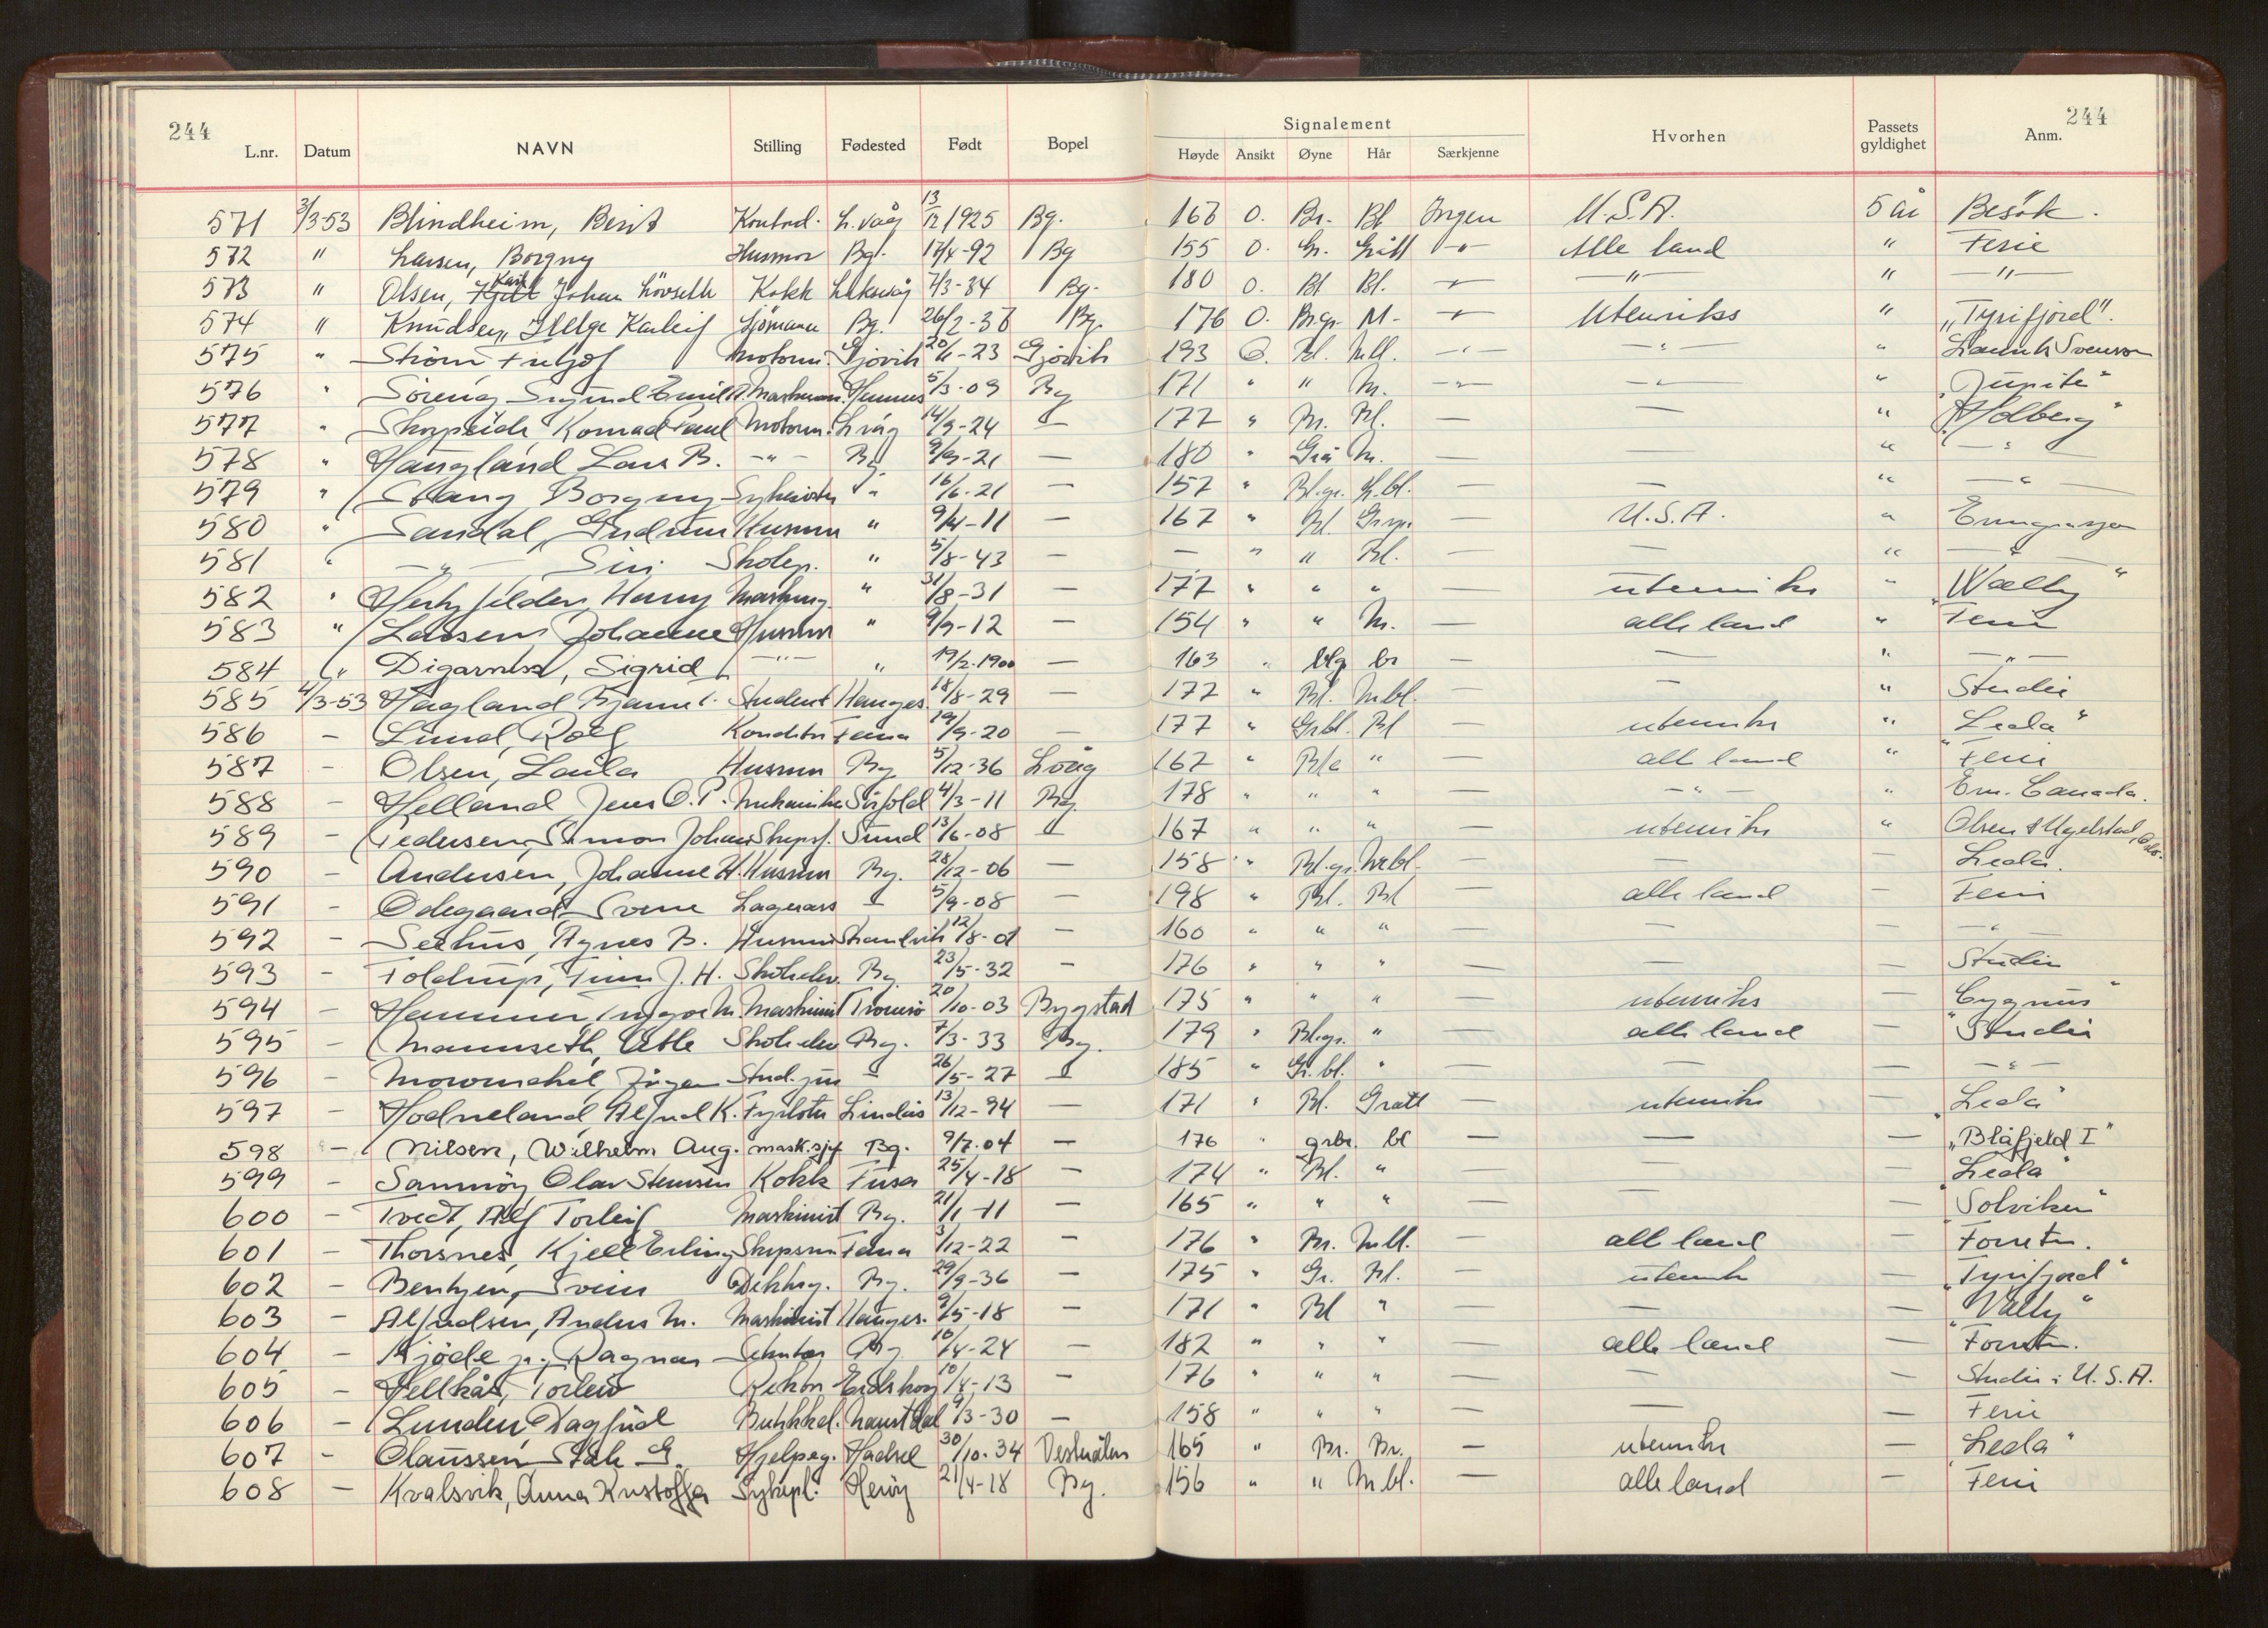 244 244
Signalement
L.nr. Datum NAVN Stilling Fødested Født Bopel Høyde Ansikt Øyne Hår Særkjenne Hvorhen Passets gyldighet Anm.
571 3/3-53 Blindheim, Berit Kontord. L.våg 13/12 1925 Bg. 168 O. Br. Bl Ingen U.S.A. 5 år Besök.
572 " Larsen, Borgny Husmor Bg. 17/4-92 Bg 155 O. Gr. Grått -"- Alle land " Ferie
573 " Olsen, Kjell Karl Johan Lövseth Kokk Laksevåg 7/3-34 Bg. 180 O. Bl Bl. -"- -"- " -"-
574 " Knudsen, Helge Karleif Sjömann Bg. 26/2-38 Bg. 176 O. Br.gr. M- -"- Utenriks " "Tyrifjord".
575 " Ström Fritjof Motorm. Gjövik 20/11-23 Gjövik 193 O. Bl. M.bl. -"- -"- " Fred. Svenson
576 " Söreng Sigurd Emil A. Maskinm. Hemnes 5/3-09 Bg 171 " " M. -"- -"- " "Jupiter"
577 " Skarpeide Konrad Paul Motorm. L.våg 14/9-24 — 177 " Br. Bl. — — " "Holberg"
578 " Haugland Lars B. -"- Bg. 9/9-21 — 180 " Grå M. — — " -"-
579 " Stang Borgny Sykesöster " 16/6-21 — 157 " Bl.gr. L.bl. — — " -"-
580 " Sandal, Gudrun Husmor " 9/4-11 — 167 " Bl. Gråspr. — U.S.A. " Emigrasjon
581 " -"- Siri Skolep. " 5/8-43 — — " " Bl. — — " -"-
582 " Harry Masking. " 31/8-31 — 177 " " " utenriks " "Wally"
583 " Larsen Johanne Husmor " 9/9-12 — 154 " " M. — alle land " Ferie
584 " Digarness, Sigrid -"- " 17/2-1900 — 163 " blg br — — " -"-
585 4/3-53 Hagland Bjarne L. Student Hauges. 18/8-29 — 177 " Bl. M.bl. — — " Studie
586 - Lund, Rolf Konditor Fana 19/9-20 — 177 " Gr.bl. Bl — utenriks " "Leda"
587 - Olsen, Laila Husmor Bg 5/12-36 L.våg 167 " Blå " — alle land " Ferie
588 - Helland Jens O.P. Mekaniker Sörfold 4/3-11 Bg. 178 " " " — -"- " Em. Canada.
589 - Pedersen, Simon Johan Skipsf. Sund 13/6-08 — 167 " " " — utenriks " Olsen & Ugelstad, Oslo.
590 - Andersen, Johanne H. Husmor Bg. 28/12-06 — 158 " Bl.gr. M.bl. — — — Leda.
591 - Ödegaard Sverre Lagerass — 5/9-08 — 198 " Bl. Bl — alle land — Ferie
592 - Seehus, Agnes B. Husmor Strandvik 12/8-01 — 160 " " " — — — -"-
593 - Toldrup, Finn J.H. Skoleelev Bg. 23/5-32 — 176 " " " — — — Studie
594 - Hammer Ingvar M. Maskinist Tromsö 20/10-03 Bygstad 175 " " " — utenriks — "Cygnus"
595 - Mannseth, Atle Skoleelev Bg. 7/3-33 Bg. 179 " Bl.gr. " — alle land — Studie
596 - Mowinckel, Jörgen Stud. jur — 26/5-27 — 185 " Gr.bl. " — — — -"-
597 - Hodneland, Alfred K. Fyrböter Lindås 13/12-94 — 171 " Bl. Grått — utenriks — "Leda"
598 - Nilsen, Wilhelm Aug. mask.sjef Bg. 9/7-04 — 176 " grbr. bl — — — "Blåfjeld I"
599 - Samnöy Olav Stensen Kokk Fusa 25/4-18 — 174 " Bl. " — — — "Leda"
600 - Tvedt, Alf Torleif Maskinist Bg. 21/1-11 — 165 " " " — — — "Solviken"
601 - Thorsnes, Kjell Erling Skipsm. Fana 3/12-22 — 176 " Br. M.bl. — alle land — Forretn.
602 - Bentzen, Svein Dekksg. Bg. 29/9-36 — 175 " Gr. Bl. — utenriks — "Tyrifjord"
603 - Alfredsen, Anders M. Maskinist Hauges. 9/5-18 — 171 " Bl " — — — "Wally"
604 - Kjöde jr., Ragnar Sekretær Bg 10/4-24 — 182 " " " — alle land — Forretn.
605 - Hellkås, Torleiv Rektor Eidskog 10/4-13 — 176 " " " — — — Studie i U.S.A.
606 - Lunden Dagfrid Butikkd. Naustdal 9/3-30 — 158 " " " — — — Ferie
607 - Olaussen Ståle G. Hjelpeg. Hadsel 30/10-34 Vesterålen 165 " Br. Br. — utenriks — "Leda"
608 - Kvalsvik, Anna Kristoffa Sykepl. Heröy 21/4-18 Bg. 156 " " M.bl. — alle land — Ferie